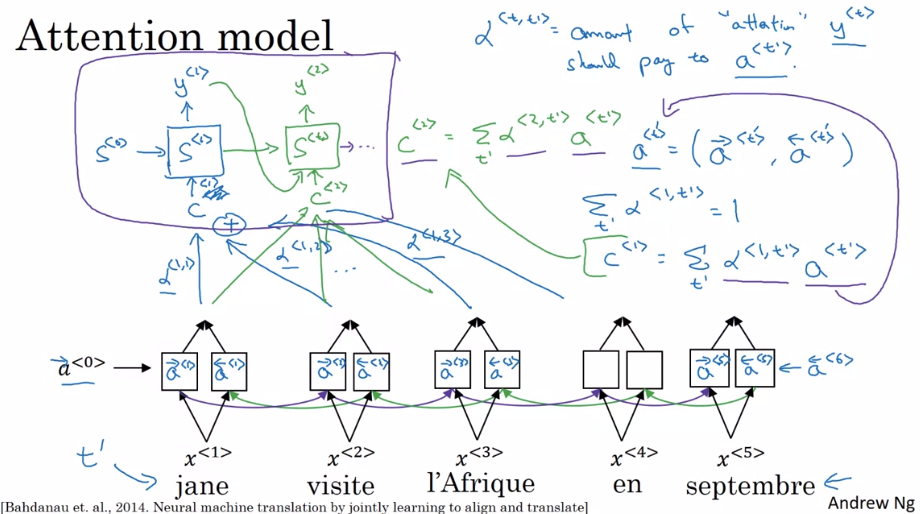 Attention model
α^{<t,t'>} = amount of "attention" y^{<t>}
should pay to a^{<t'>}.
y^{<1>} y^{<2>}
S^{<0>} → S^{<1>} → S^{<2>} → ...
C^{<1>} C^{<2>}
+
C^{<2>} = Σ_{t'} α^{<2,t'>} a^{<t'>}
a^{<t'>} = (→a^{<t'>}, ←a^{<t'>})
Σ_{t'} α^{<1,t'>} = 1
C^{<1>} = Σ_{t'} α^{<1,t'>} a^{<t'>}
α^{<1,1>} α^{<1,2>} ... α^{<1,3>}
→a^{<0>} → →a^{<1>} ←a^{<1>} →a^{<5>} ←a^{<5>} ← ←a^{<6>}
t' x^{<1>} x^{<2>} x^{<3>} x^{<4>} x^{<5>}
jane visite l'Afrique en septembre ←
[Bahdanau et. al., 2014. Neural machine translation by jointly learning to align and translate]
Andrew Ng